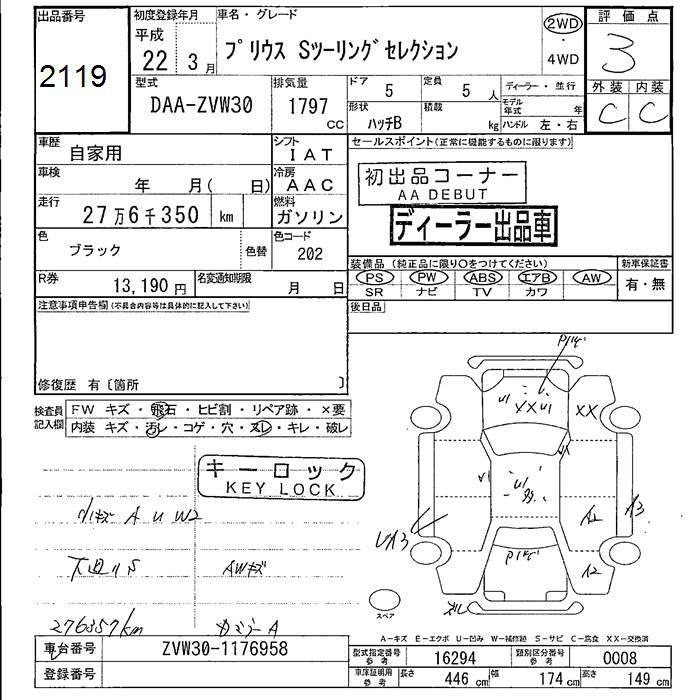 出品番号
2119
初度登録年月
平成
22年3月
車名・グレード
プリウス Sツーリングセレクション
2WD
・
4WD
評価点
3
外装 内装
C C
型式
DAA-ZVW30
排気量
1797
CC
ドア 5
定員 5人
ディーラー・並行
形状 ハッチB
積載 kg
モデル年式 年
ハンドル 左・右
車歴 自家用
シフト IAT
車検 年 月( 日)
冷房 AAC
走行 27万6千350 km
燃料 ガソリン
色 ブラック
色替
色コード 202
R券 13,190円
名変通知期限 月 日
セールスポイント(正常に機能するものに限ります)
初出品コーナー
AA DEBUT
ディーラー出品車
装備品(純正品に限り○をつけてください)
新車保証書
PS PW ABS エアB AW
SR ナビ TV カワ
有・無
後日品
注意事項申告欄(不具合内容等は具体的に記入して下さい)
修復歴 有〔箇所 〕
検査員記入欄
FW キズ・飛石・ヒビ割・リペア跡・×要
内装 キズ・汚レ・コゲ・穴・スレ・キレ・破レ
キーロック
KEY LOCK
小キズ A U W2
下廻りS
AWキズ
276357km
カミラーA
U1
XXU1
XX
U1
A2
A3
UA3
A2
スペア
A-キズ E-エクボ U-凹み W-補修跡 S-サビ C-腐食 XX-交換済
車台番号 ZVW30-1176958
登録番号
型式指定番号 参考 16294
類別区分番号 参考 0008
車庫証明用 参考
長さ 446cm
幅 174cm
高さ 149cm